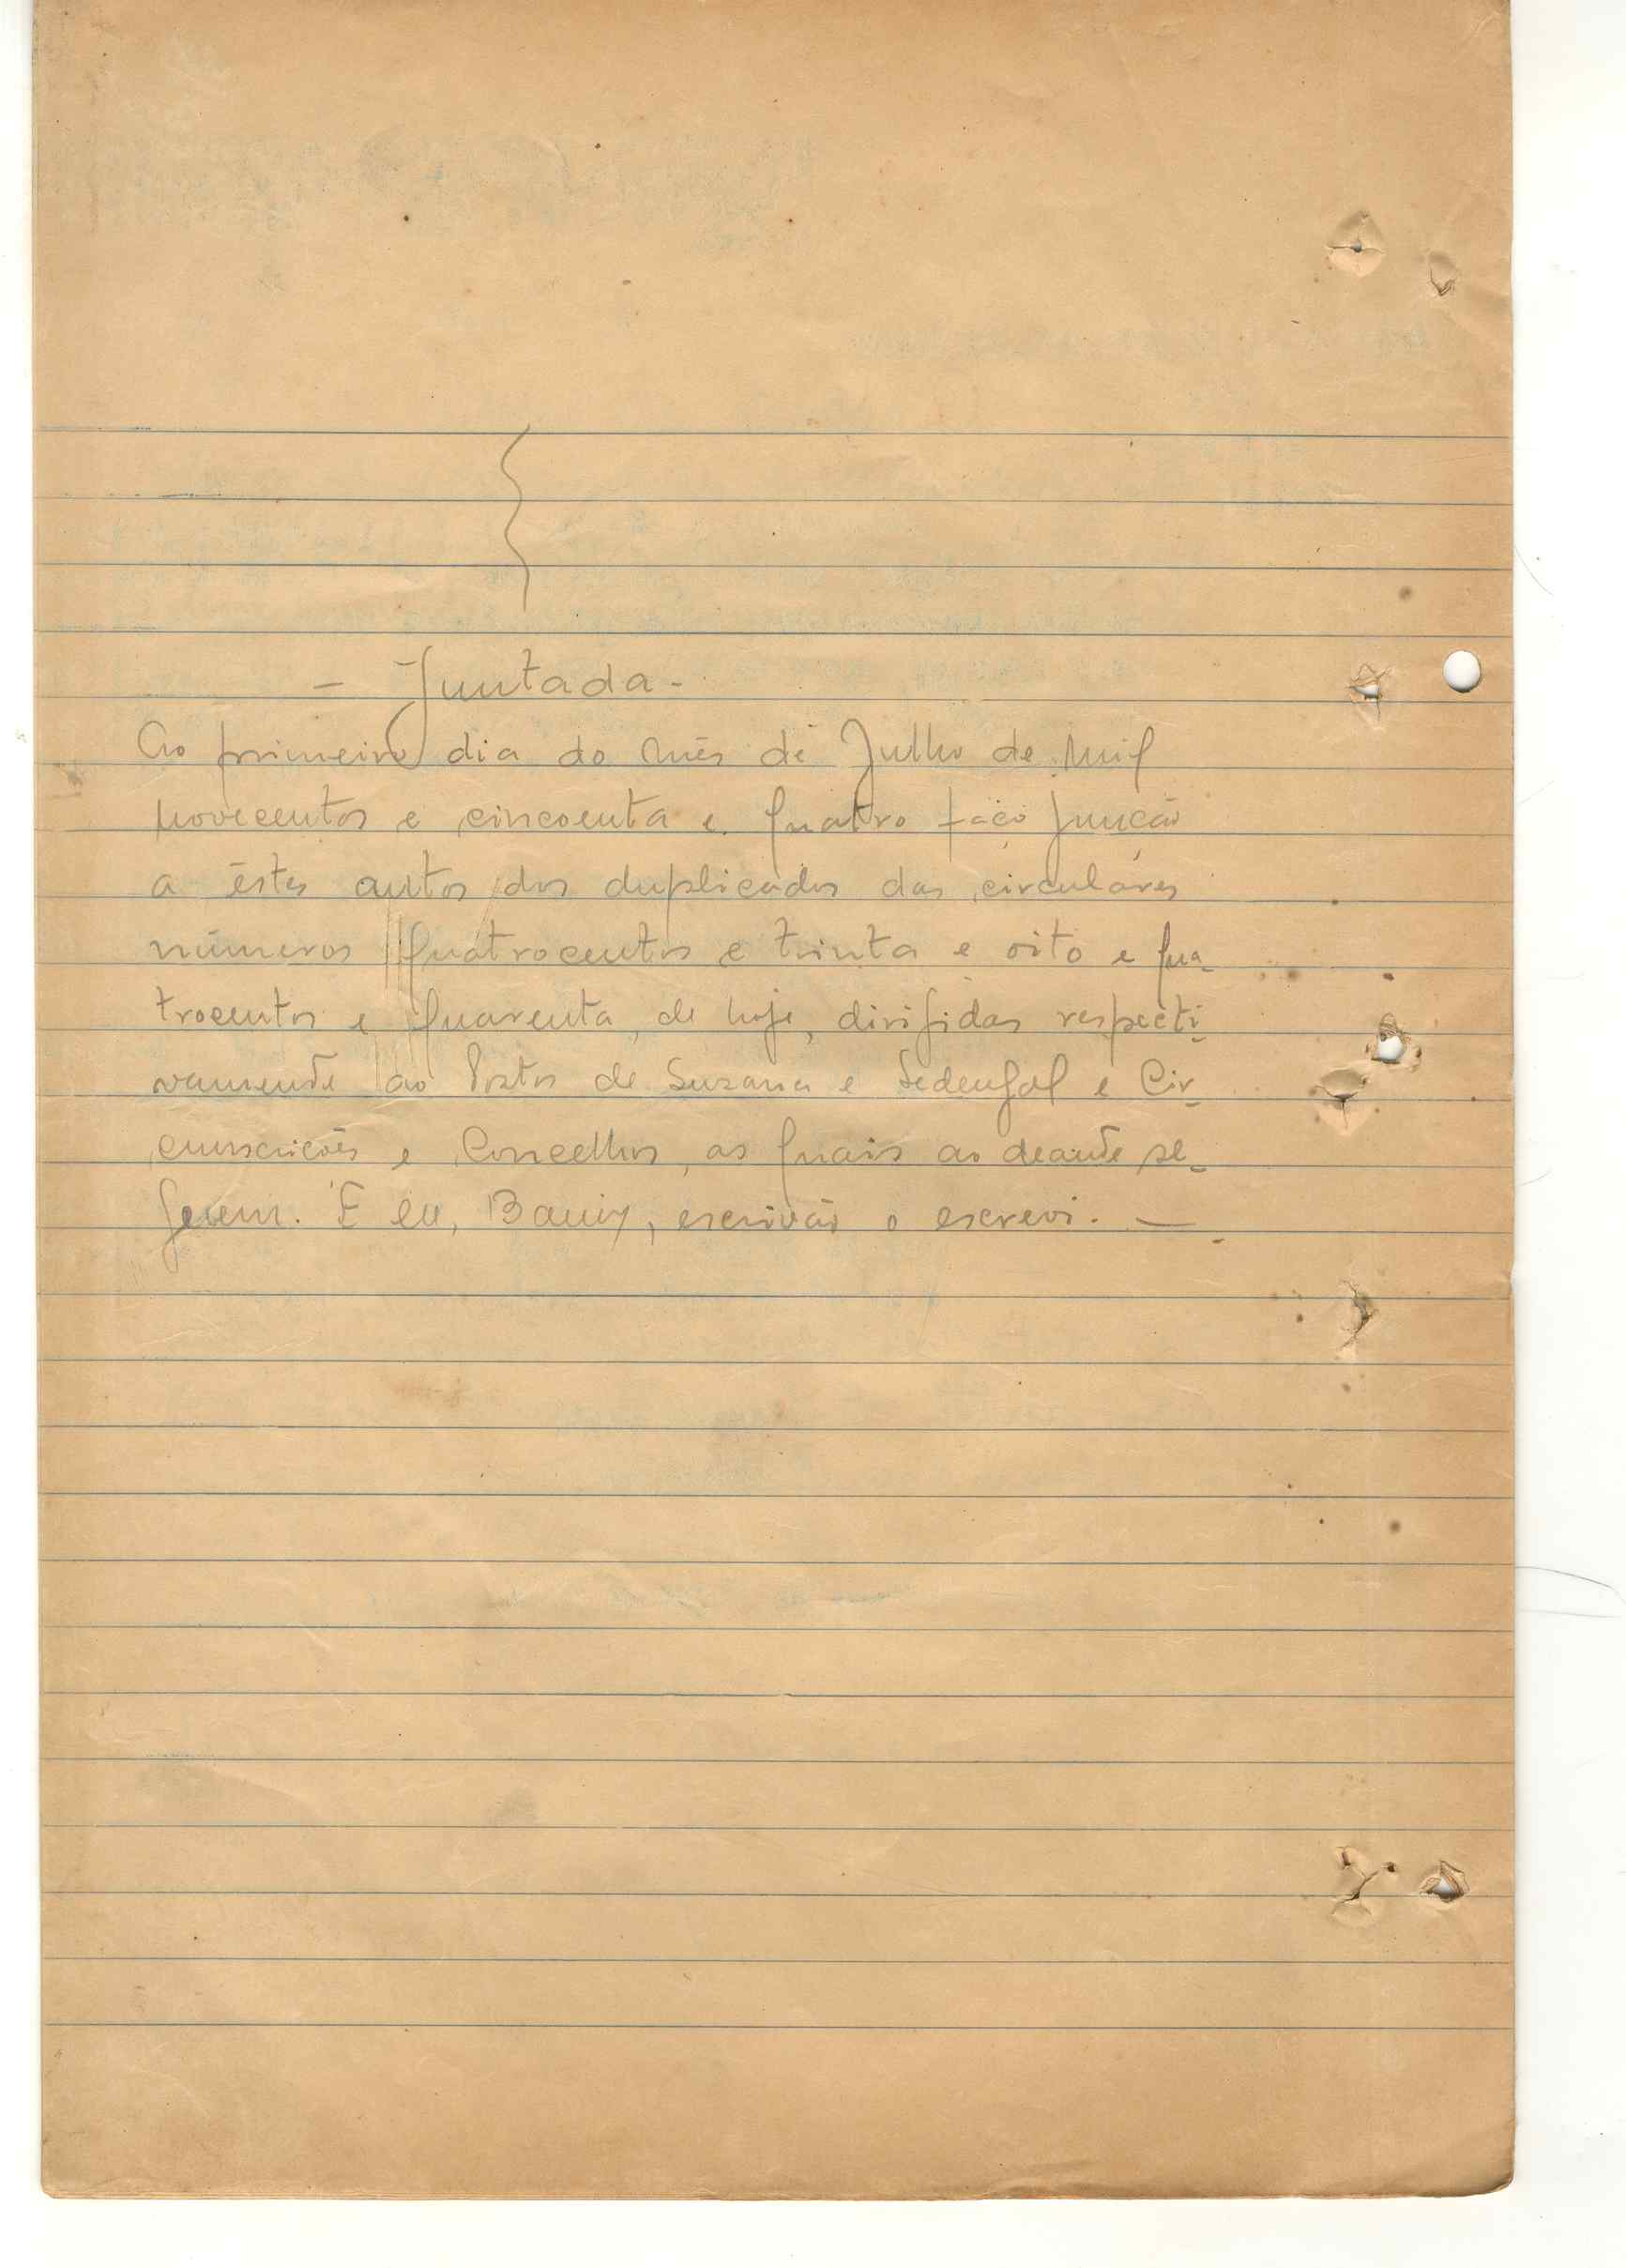 - Juntada -
Ao primeiro dia do mês de Julho de mil
novecentos e cincoenta e quatro faço junção
a êstes autos dos duplicados das circulares
números quatrocentos e trinta e oito e qua-
trocentos e quarenta, de hoje, dirigidas respecti-
vamente ao Postos de Suzana e Sedengal e Cir-
cunscrições e Concelhos, as quais ao deante se-
guem. E eu, escrivão o escrevi. —